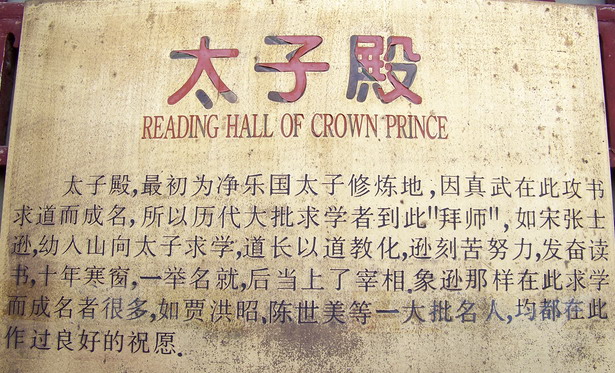 太子殿
READING HALL OF CROWN PRINCE
太子殿,最初为净乐国太子修炼地,因真武在此攻书
求道而成名,所以历代大批求学者到此"拜师",如宋张士
逊,幼入山向太子求学,道长以道教化,逊刻苦努力,发奋读
书,十年寒窗,一举名就,后当上了宰相.象逊那样在此求学
而成名者很多,如贾洪昭、陈世美等一大批名人,均都在此
作过良好的祝愿.